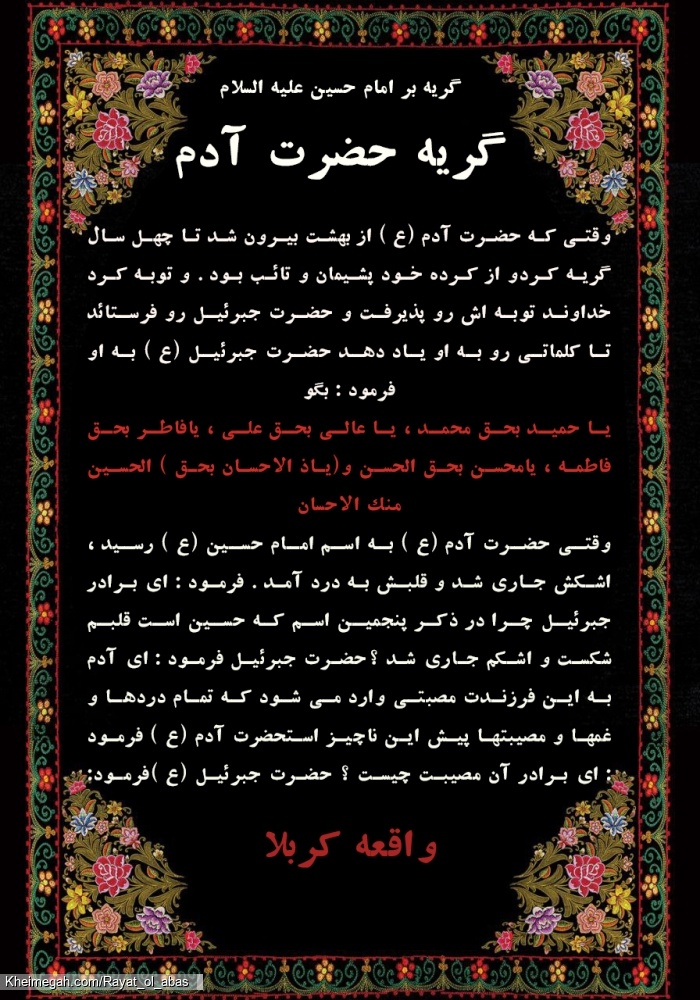 گریه بر امام حسین علیه السلام
گریه حضرت آدم
وقتی که حضرت آدم (ع ) از بهشت بیرون شد تا چهل سال
گریه کردو از کرده خود پشیمان و تائب بود . و توبه کرد
خداوند توبه اش رو پذیرفت و حضرت جبرئیل رو فرستائد
تا کلماتی رو به او یاد دهد حضرت جبرئیل (ع ) به او
فرمود : بگو
یا حمید بحق محمد ، یا عالی بحق علی ، یافاطر بحق
فاطمه ، یامحسن بحق الحسن و(یاذ الاحسان بحق ) الحسین
منك الاحسان
وقتی حضرت آدم (ع ) به اسم امام حسین (ع ) رسید ،
اشکش جاری شد و قلبش به درد آمد . فرمود : ای برادر
جبرئیل چرا در ذکر پنجمین اسم که حسین است قلبم
شکست و اشکم جاری شد ؟حضرت جبرئیل فرمود : ای آدم
به این فرزندت مصبتی وارد می شود که تمام دردها و
غمها و مصیبتها پیش این ناچیز استحضرت آدم (ع ) فرمود
: ای برادر آن مصیبت چیست ؟ حضرت جبرئیل (ع )فرمود:
واقعه کربلا
Kheimegah.com/Rayat_ol_abas